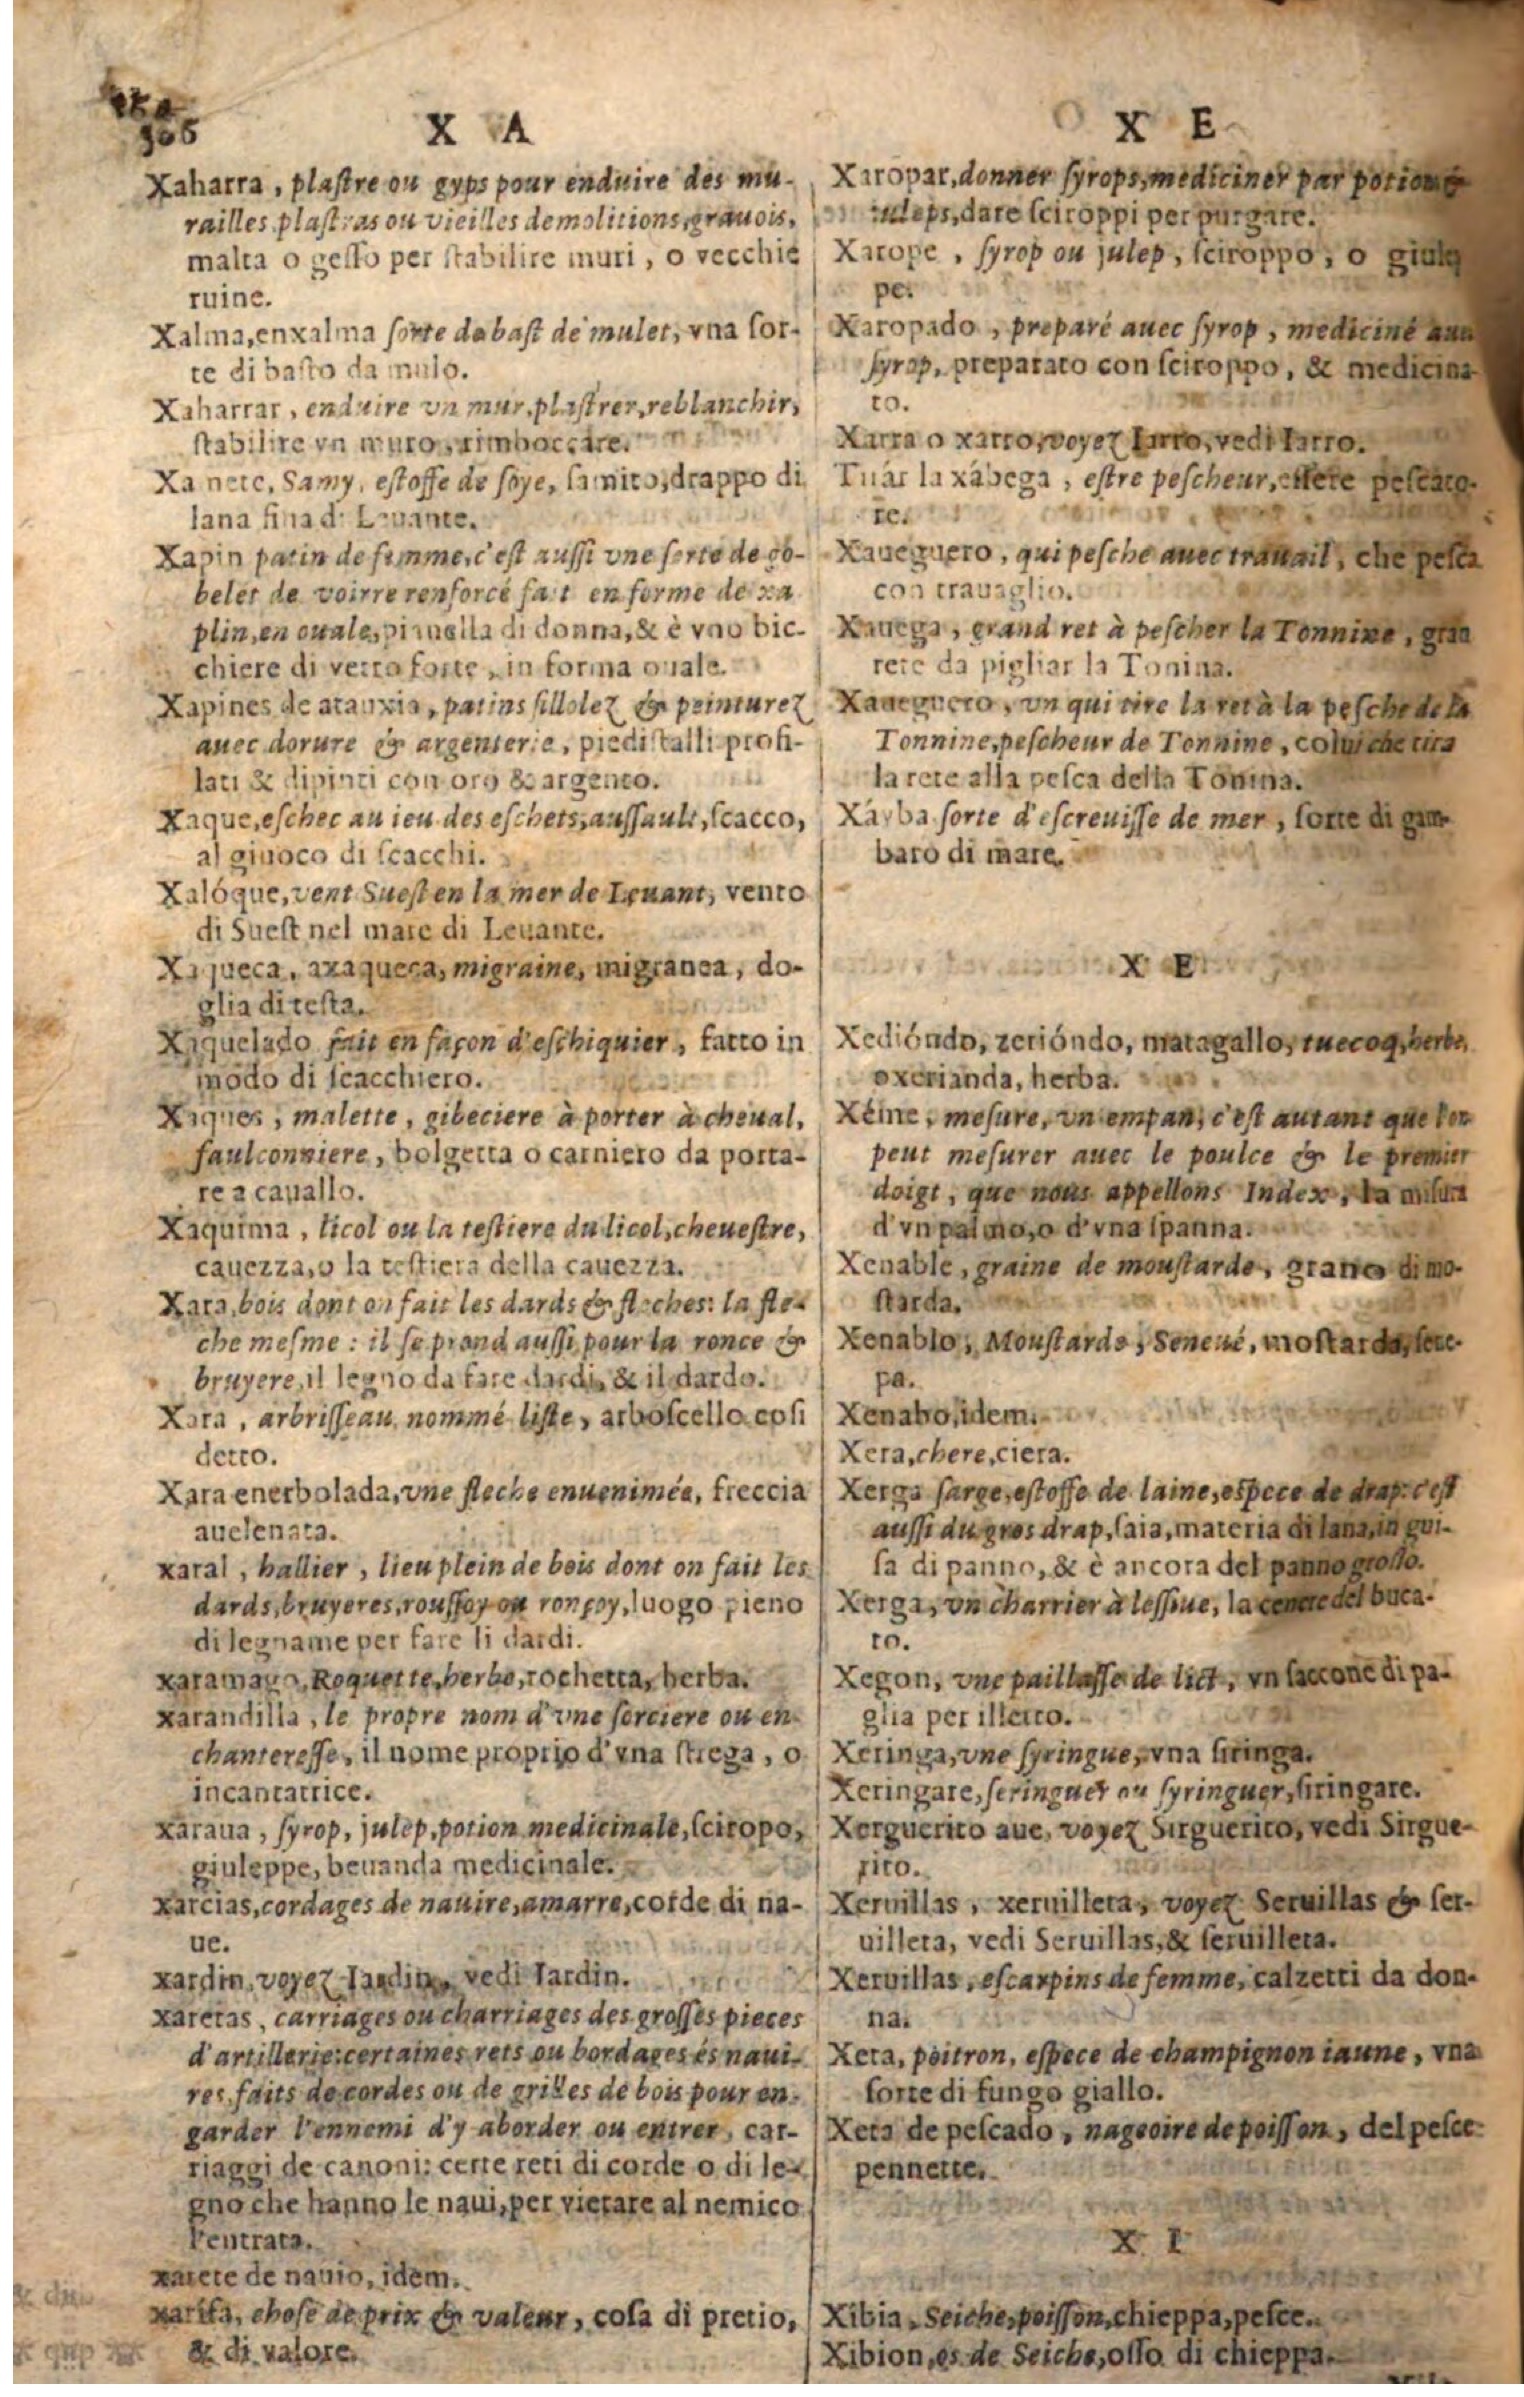 306
X A
Xaharra, plaſtre ou gyps pour enduire des mu-
railles, plaſtras ou vieilles demolitions, grauois,
malta o geſſo per ſtabilire muri, o vecchie
ruine.
Xalma, enxalma ſorte de baſt de mulet, vna ſor-
te di baſto da mulo.
Xaharrar, enduire vn mur, plaſtrer, reblanchir,
ſtabilire vn muro, rimboccare.
Xa nete, Samy, eſtoffe de ſoye, ſamito, drappo di
lana fina di Leuante.
Xapin patin de femme, c'eſt auſſi vne ſorte de go-
belet de voirre renforcé fait en forme de xa
plin, en ouale, pianella di donna, & è vno bic-
chiere di vetro forte, in forma ouale.
Xapines de atauxia, patins ſillolez & peinturez
auec dorure & argenterie, piediſtalli profi-
lati & dipinti con oro & argento.
Xaque, eſchec au ieu des eſchets, auſſault, ſcacco,
al giuoco di ſcacchi.
Xalóque, vent Sueſt en la mer de Leuant, vento
di Sueſt nel mare di Leuante.
Xaqueca, axaqueca, migraine, migranea, do-
glia di teſta.
Xaquelado fait en façon d'eſchiquier, fatto in
modo di ſcacchiero.
Xaques, malette, gibeciere à porter à cheual,
faulconniere, bolgetta o carniero da porta-
re a cauallo.
Xaquima, licol ou la teſtiere du licol, cheueſtre,
cauezza, o la teſtiera della cauezza.
Xara, bois dont on fait les dards & fleches: la fle-
che meſme: il ſe prend auſſi pour la ronce &
bruyere, il legno da fare dardi, & il dardo.
Xara, arbriſſeau nommé liſte, arboſcello coſi
detto.
Xara enerbolada, vne fleche enuenimée, freccia
auelenata.
xaral, hallier, lieu plein de bois dont on fait les
dards, bruyeres, rouſſoy ou ronçoy, luogo pieno
di legname per fare li dardi.
xaramago, Roquette, herbe, rochetta, herba.
xarandilla, le propre nom d'vne ſorciere ou en-
chantereſſe, il nome proprio d'vna ſtrega, o
incantatrice.
xaraua, ſyrop, julep, potion medicinale, ſciropo,
giuleppe, beuanda medicinale.
xarcias, cordages de nauire, amarre, corde di na-
ue.
xardin, voyez Iardin, vedi Iardin.
xaretas, carriages ou charriages des groſſes pieces
d'artillerie: certaines rets ou bordages és naui-
res, faits de cordes ou de grilles de bois pour en-
garder l'ennemi d'y aborder ou entrer, car-
riaggi de canoni: certe reti di corde o di le-
gno che hanno le naui, per vietare al nemico
l'entrata.
xarete de nauio, idem.
xarifa, choſe de prix & valeur, coſa di pretio,
& di valore.
X E
Xaropar, donner ſyrops, mediciner par potion &
iuleps, dare ſciroppi per purgare.
Xarope, ſyrop ou julep, ſciroppo, o giulep
pe.
Xaropado, preparé auec ſyrop, mediciné auec
ſyrop, preparato con ſciroppo, & medicina-
to.
Xarra o xarro, voyez Iarro, vedi Iarro.
Tuár la xábega, eſtre peſcheur, eſſere peſcato-
re.
Xaueguero, qui peſche auec trauail, che peſca
con trauaglio.
Xauega, grand ret à peſcher la Tonnine, gran
rete da pigliar la Tonina.
Xaueguero, vn qui tire la ret à la peſche de la
Tonnine, peſcheur de Tonnine, colui che tira
la rete alla peſca della Tonina.
Xáyba ſorte d'eſcreuiſſe de mer, ſorte di gam-
baro di mare.
X E
Xedióndo, zerióndo, matagallo, tuecoq, herbe,
oxerianda, herba.
Xéme, meſure, vn empan, c'eſt autant que l'on
peut meſurer auec le poulce & le premier
doigt, que nous appellons Index, la miſura
d'vn palmo, o d'vna ſpanna.
Xenable, graine de mouſtarde, grano di mo-
ſtarda.
Xenablo, Mouſtarde, Seneué, moſtarda, ſene-
pa.
Xenabo, idem.
Xera, chere, ciera.
Xerga ſarge, eſtoffe de laine, eſpece de drap: c'eſt
auſſi du gros drap, ſaia, materia di lana, in gui-
ſa di panno, & è ancora del panno groſſo.
Xerga, vn charrier à leſſiue, la cenere del buca-
to.
Xegon, vne paillaſſe de lict, vn ſaccone di pa-
glia per il letto.
Xeringa, vne ſyringue, vna ſiringa.
Xeringare, ſeringuer ou ſyringuer, ſiringare.
Xerguerito aue, voyez Sirguerito, vedi Sirgue-
rito.
Xeruillas, xeruilleta, voyez Seruillas & ſer-
uilleta, vedi Seruillas, & ſeruilleta.
Xeruillas, eſcarpins de femme, calzetti da don-
na.
Xeta, poitron, eſpece de champignon iaune, vna
ſorte di fungo giallo.
Xeta de peſcado, nageoire de poiſſon, del peſce
pennette.
X I
Xibia, Seiche, poiſſon, chieppa, peſce.
Xibion, os de Seiche, oſſo di chieppa.